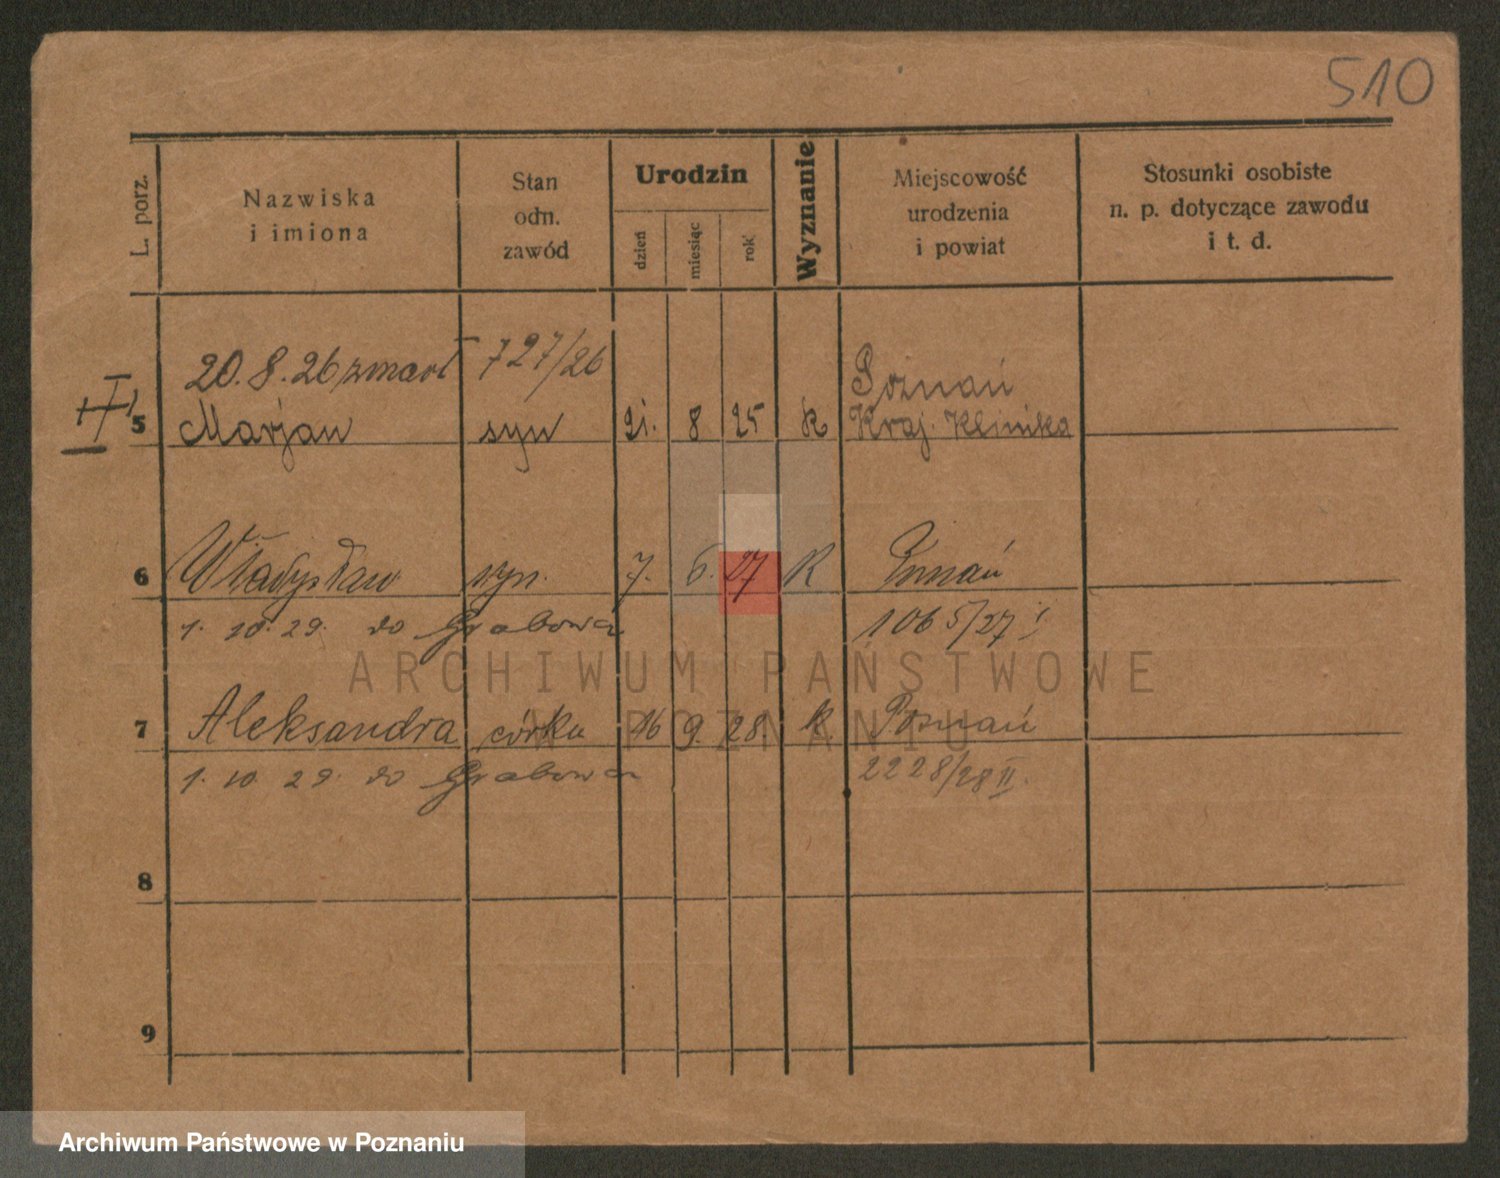 510
L. porz.
Nazwiska
i imiona
Stan
odn.
zawód
Urodzin
dzień
miesiąc
rok
Wyznanie
Miejscowość
urodzenia
i powiat
Stosunki osobiste
n. p. dotyczące zawodu
i t. d.
20.8.26 zmarł 727/26 Poznań
5 Marjan syn 21. 8 25 k Kraj. Klinika
6 Władysław syn. 7. 6. 27 K Poznań
1. 10. 29. do Grabowa 1065/27 I
7 Aleksandra córka 16 9. 28. k. Poznań
1. 10. 29. do Grabowa 2228/28 II.
8
9
ARCHIWUM PAŃSTWOWE
W POZNANIU
Archiwum Państwowe w Poznaniu